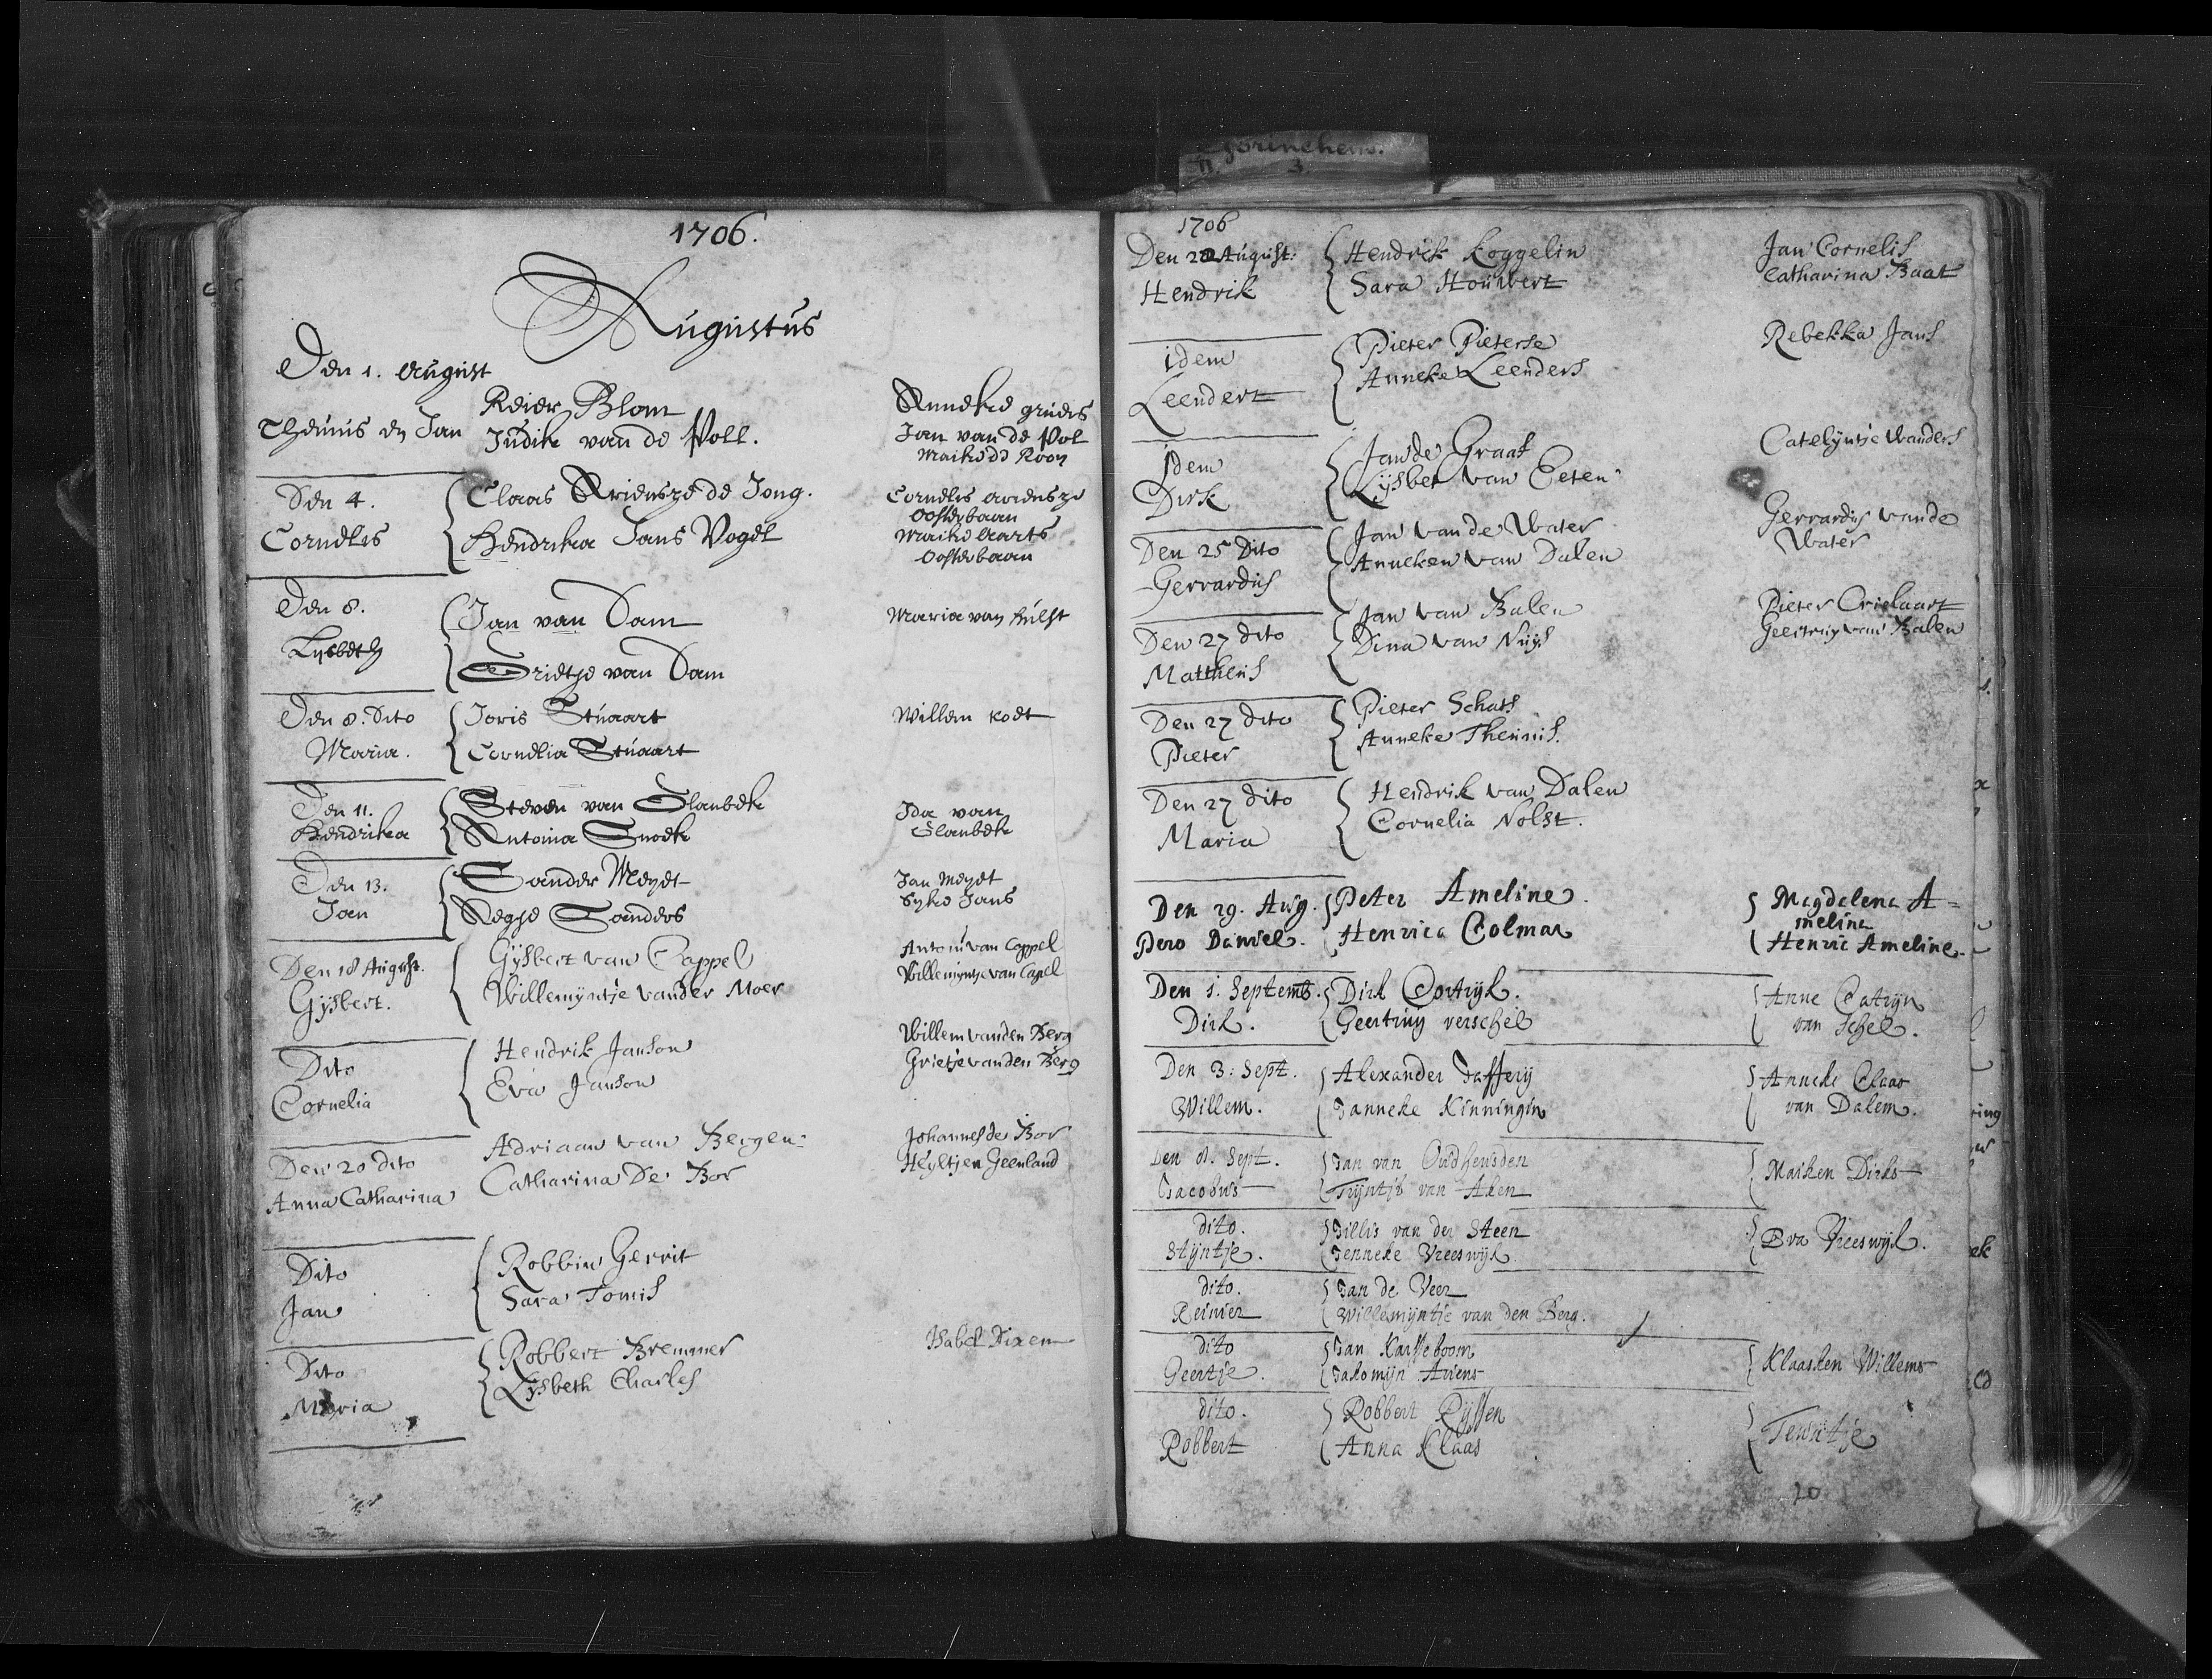 Gorinchem.
II. 3.
1706.
Augustus
Den 1. August
Theunis en Jan
Reier Blom
Judik van de Poll.
Anneke grüers
Jan van de Pol
Maike de Rooy
Den 4.
Cornelis
Claas Ariensze de Jong.
Hendrika Jans Vogel
Cornelis ariensze
oosterbaan
Maike Aarts
oosterbaan
Den 8.
Lysbeth
Jan van Dam
Grietje van Dam
Maria van hulst
Den 8. Dito
Maria.
Joris Stuaart
Cornelia Stuaart
Willem
Den 11.
Hendrika
Steven van Slanbek
Antonia Snoek
Ida van
Slanbek
Den 13.
Jan
Sander Meyet
Aegje Sanders
Jan Meyet
Syke Jans
Den 18 August.
Gysbert.
Gysbert van Cappel
Willemyntje vander Moer
Antoni van Cappel
Willemyntje van Capel
Dito
Cornelia
Hendrik Janson
Eva Janson
Willem vanden Berg
Grietje vanden Berg
Den 20 dito
Anna Catharina
Adriaan van Bergen:
Catharina De Bor
Johannes de Bor
Heyltjen Geenland
Dito
Jan
Robbin Gerrit
Sara Tomis
Dito
Maria
Robbert Bremmer
Lysbeth Charles
Isabel Dixem
1706
Den 22 August:
Hendrik
Hendrik Koggelin
Sara Houwert
Jan Cornelis
Catharina Baat
idem
Leendert
Pieter Pieterse
Anneke Leenders
Rebekka Jans
Idem
Dirk
Jan de Graaf
Lijsbet van Eeten
Catelyntje Wanders
Den 25 Dito
Gerrardus
Jan van de Water
Anneken van Dalen
Gerrardus vande
Water
Den 27 dito
Mattheus
Jan van Balen
Dina van Nuys
Pieter Crielaart
Geertruy van Balen
Den 27 dito
Pieter
Pieter Schats
Anneke Theunis.
Den 27 dito
Maria
Hendrik van Dalen
Cornelia Nolst.
Den 29. Aug.
Pero Daniel.
Peter Ameline.
Henrica Colmar
Magdalena A=
meline
Henric Ameline.
Den 1. Septemb.
Dirk.
Dirk Cortryk.
Geertruy verschel
Anne Catryn
van Schel.
Den 3: Sept.
Willem.
Alexander Jaffery
Janneke Kinningin
Anneke Claas
van Dalem.
Den 8. Sept.
Jacobus
Jan van Oudheusden
Tryntje van Aken
Maiken Dirks
dito.
Stijntje.
Gillis van der Steen
Jenneke Vreeswyk.
Eva Vreeswyk.
dito.
Reinier
Jan de Veer
Willemyntje van den Berg.
dito
Geertje.
Jan Karsseboom
Jakomijn Ariens
Klaasken Willems
dito.
Robbert
Robbert Ryssen
Anna Klaas
Teuntje
10